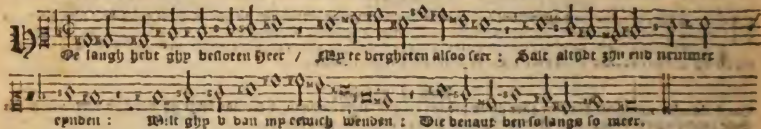 HOe langh hebt ghy besloten Heer / My te vergheten alsoo seer : Salt altydt zijn end nemmer
eynden : Wilt ghy v van my eewich wenden : Die benaut ben so langs so meer.